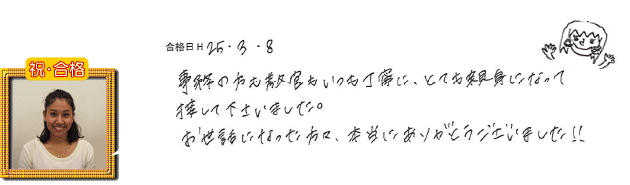 祝・合格
合格日 H 25・3・8
事務の方も教官もいつも丁寧に、とても親身になって
接して下さいました。
お世話になった方々、本当にありがとうございました!!